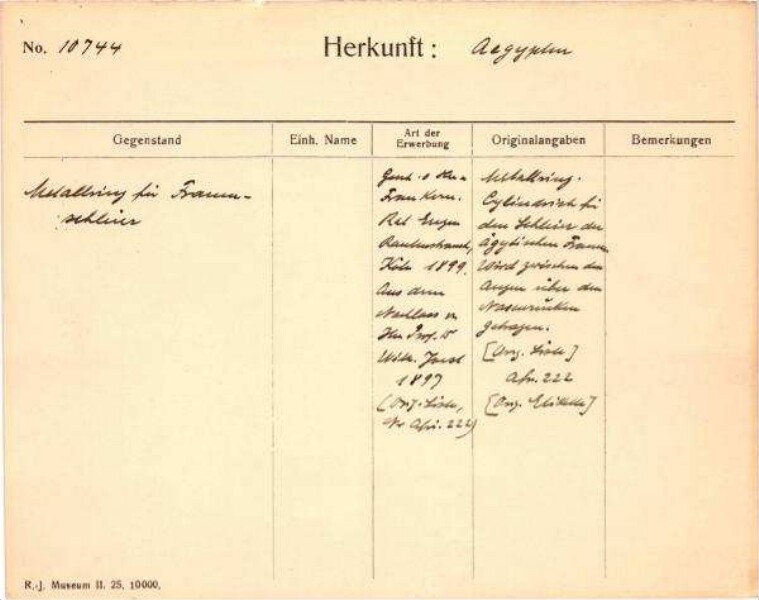 No. 10744
Herkunft: Aegypten
Gegenstand
Einh. Name
Art der Erwerbung
Originalangaben
Bemerkungen
Metallring für Frauen-
schleier
Frau Kom.
Rat Eugen
Rautenstrauch,
Köln 1899.
Aus dem
Nachlass v.
Hrn Prof. Dr
Wilh. Joest
1897
(Orig. Liste,
Nr Afr. 222)
Metallring.
Cylindrisch für
den Schleier der
ägyptischen Frauen.
Wird zwischen den
Augen über den
Nasenrücken
getragen.
[Orig. Liste]
Afr. 222
[Orig. Etikette]
R.-J. Museum II. 25. 10000.